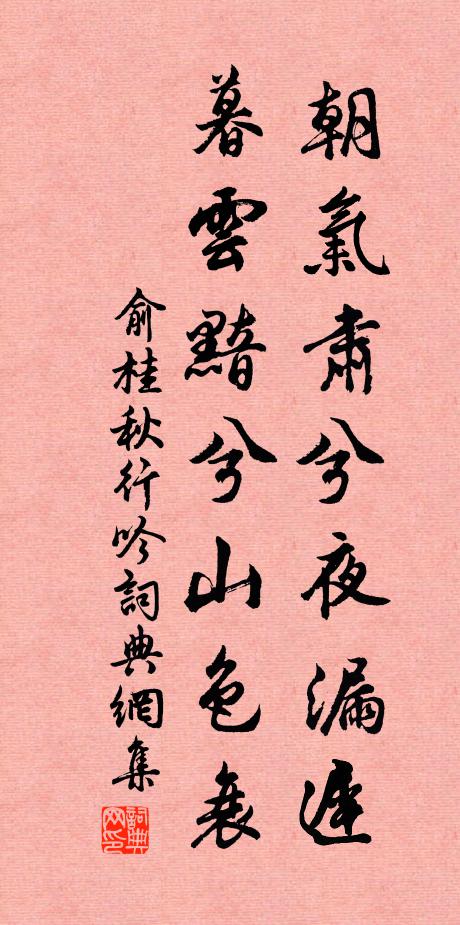 朝氣肅兮夜漏遲
暮雲黯兮山色衰
俞桂秋行吟詞典網集
詞典網印